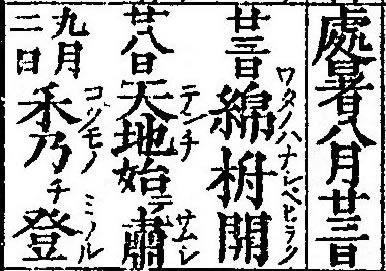 處暑八月廿三日
廿三日綿柎開
ワタノハナシベヒラク
廿八日天地始肅
テンチ始テサムシ
九月二日禾乃登
コクモノチミノル